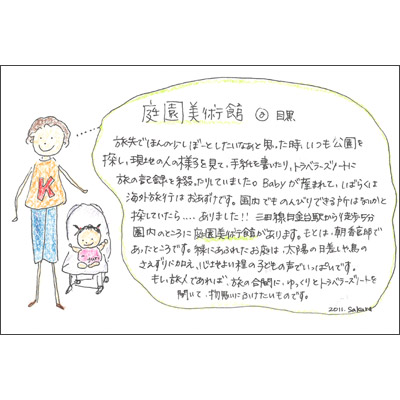 庭園美術館 @ 目黒
旅先でほんの少しぼーっとしたいなあと思った時、いつも公園を
探し、現地の人の様子を見て、手紙を書いたり、トラベラーズノートに
旅の記録を綴ったりしていました。Babyが産まれて、しばらくは
海外旅行はおあずけです。国内でものんびりできる所はないかと
探していたら....ありました!! 三田線白金台駅から徒歩5分
圏内のところに庭園美術館があります。もとは、朝香宮邸で
あったところです。緑にあふれたお庭は、太陽の日差しや鳥の
さえずりに加え、心はずむ程の子どもの声でいっぱいです。
もし、旅人であれば、旅の合間に、ゆっくりとトラベラーズノートを
開いて、物思いにふけたいものです。
2011. Sakura
K